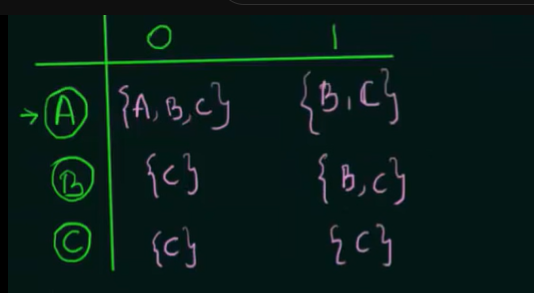 0 1
→ A {A, B, C} {B, C}
B {C} {B, C}
C {C} {C}